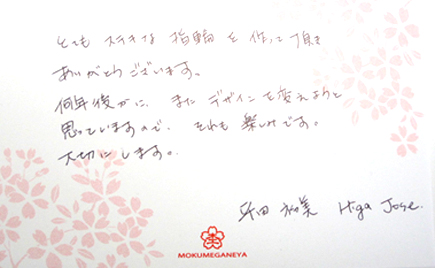 とても ステキな 指輪 を 作って 頂き
ありがとうございます。
何年後かに、また デザインを変えようと
思っていますので、それも 楽しみです。
大切にします。
美 Higa Jose.
MOKUMEGANEYA